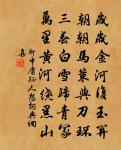 歲歲金河復玉關
朝朝馬策與刀環
三春白雪歸青冢
萬里黃河繞黑山
柳中庸征人怨詞典網
集